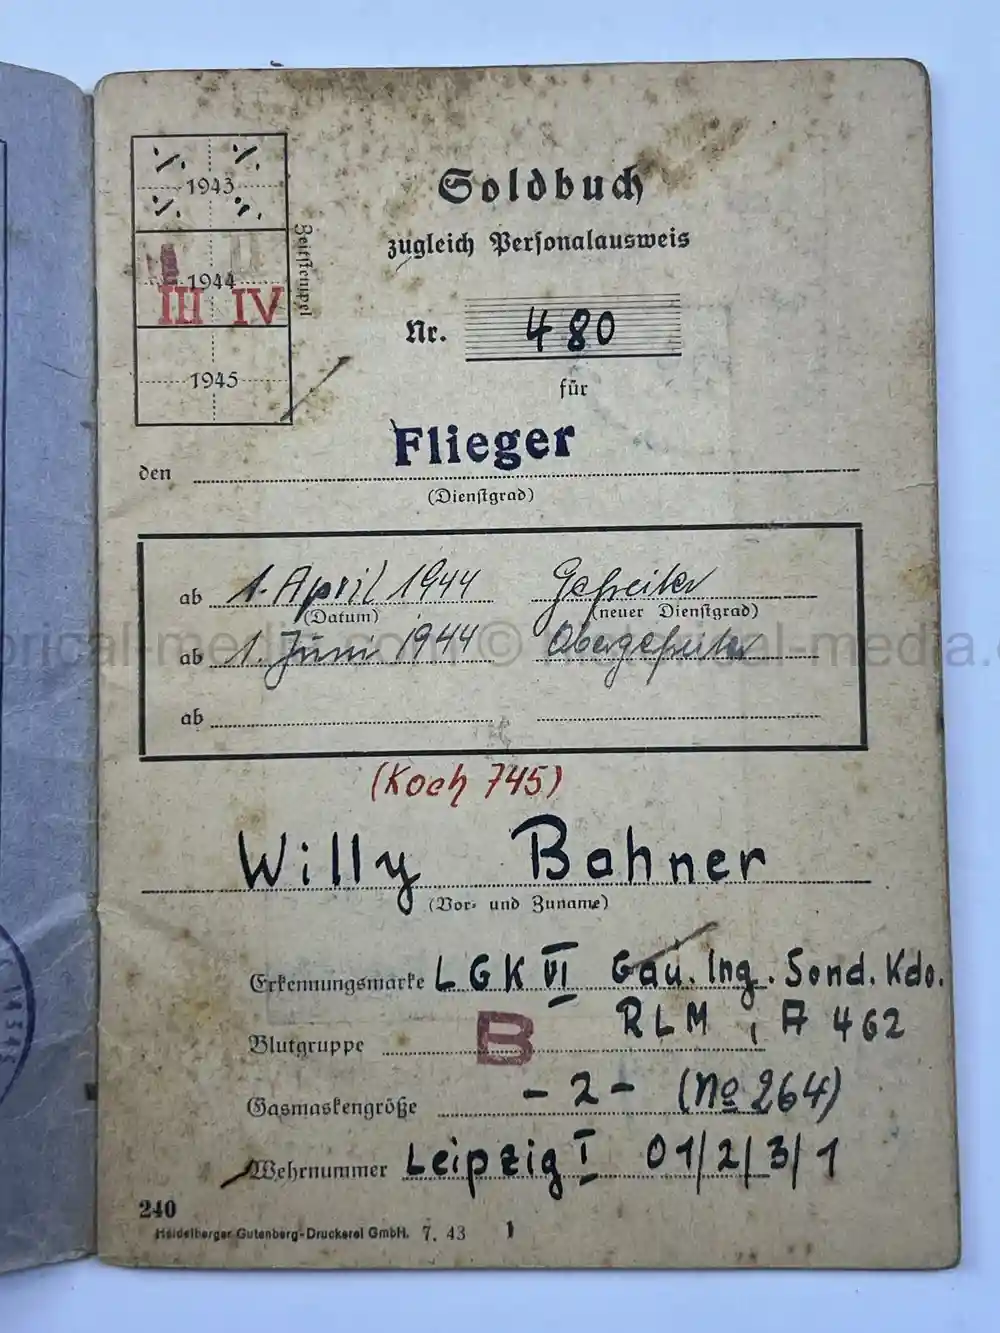 Soldbuch
zugleich Personalausweis
1943
1944
III IV
1945
Zeitstempel
Nr. 480
für
den Flieger
(Dienstgrad)
ab 1. April 1944 Gefreiter
(Datum) (neuer Dienstgrad)
ab 1. Juni 1944 Obergefreiter
ab
(Koch 745)
Willy Bahner
(Vor- und Zuname)
Erkennungsmarke LGK VI Gau. Ing. Sond. Kdo.
RLM, A 462
Blutgruppe B
Gasmaskengröße - 2 - (No 264)
Wehrnummer Leipzig I 01/2/3/1
240
Heidelberger Gutenberg-Druckerei GmbH. 7. 43 1